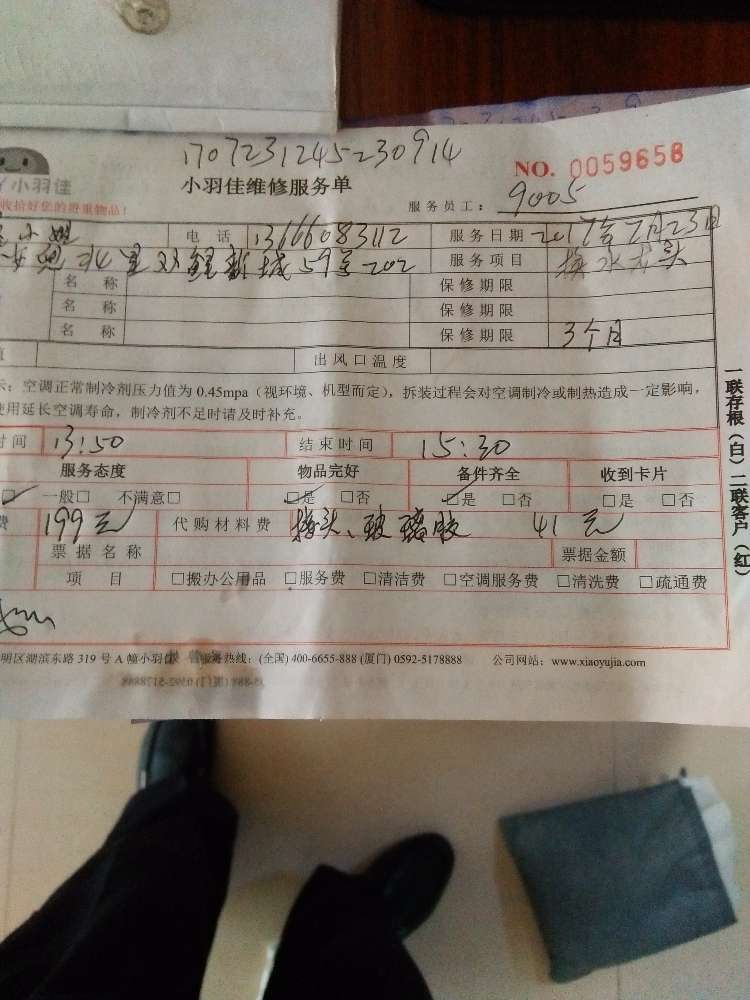 1707231245-230914
NO. 0059658
小羽佳
小羽佳维修服务单
服务员工： 9005
收拾好您的贵重物品！
小姐 电话 13666083112 服务日期 2017年7月23日
双鲤新城59号202 服务项目 换水龙头
名称 保修期限
名称 保修期限
名称 保修期限 3个月
出风口温度
示：空调正常制冷剂压力值为 0.45mpa（视环境、机型而定），拆装过程会对空调制冷或制热造成一定影响，
使用延长空调寿命，制冷剂不足时请及时补充。
时间 13:50 结束时间 15:30
服务态度 物品完好 备件齐全 收到卡片
一般□ 不满意□ □是 □否 □是 □否 □是 □否
费 199元 代购材料费 接头、玻璃胶 41元
票据名称 票据金额
项目 □搬办公用品 □服务费 □清洁费 □空调服务费 □清洗费 □疏通费
明区湖滨东路 319 号 A 幢小羽佳 服务热线：(全国) 400-6655-888 (厦门) 0592-5178888 公司网站：www.xiaoyujia.com
一联存根（白）二联客户（红）